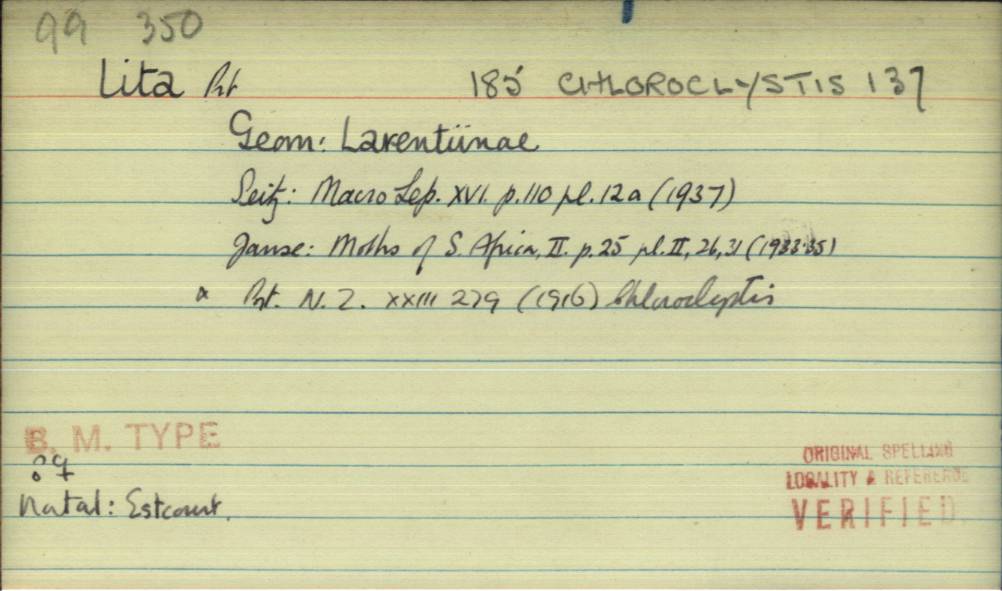 99 350
Lita Prt 185 CHLOROCLYSTIS 137
Geom: Larentiinae
Seitz: Macro Lep. XVI. p.110 pl.12a (1937)
Janse: Moths of S. Africa, II. p.25 pl.II, 26,31 (1933-35)
Prt. N. Z. XXIII 279 (1916) Chloroclystis
B. M. TYPE
♀
Natal: Estcourt.
ORIGINAL SPELLING
LOCALITY & REFERENCE
VERIFIED